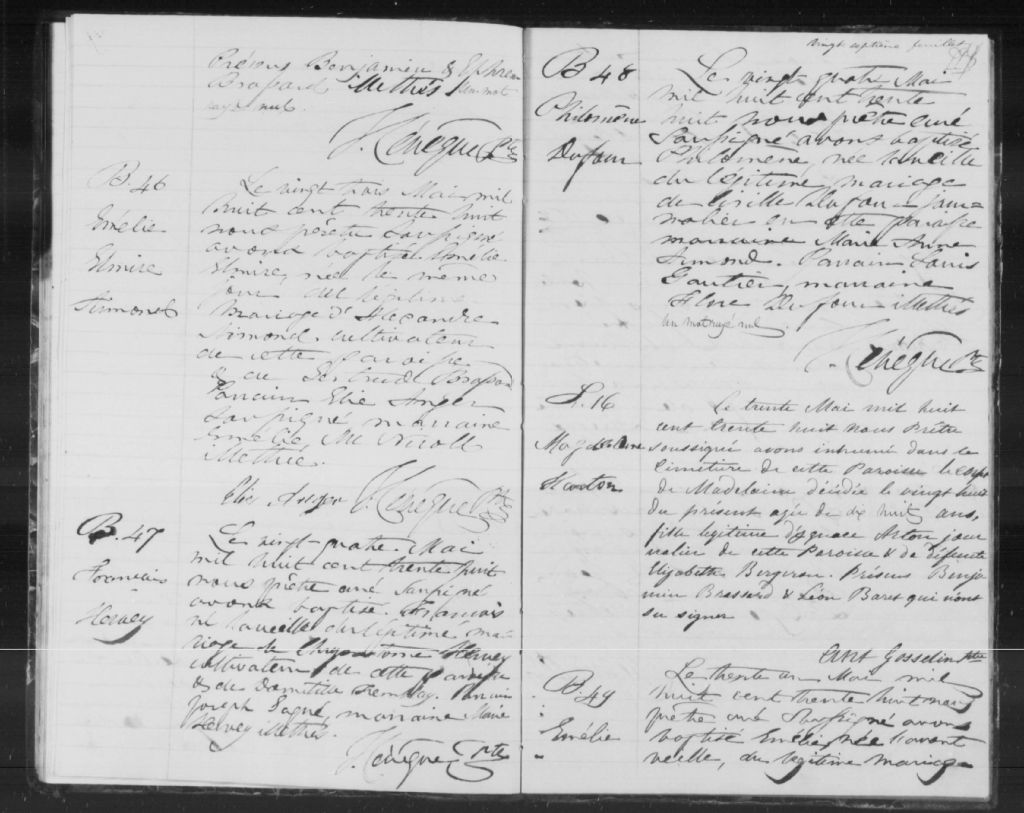 Présens Benjamin &
Brassard Illettrés un mot
rayé nul.
Ptre
B. 46
Emélie
Elmire
Simonet
Le vingt trois Mai mil
huit cent trente huit
nous prêtre soussigné
avons baptisé Emélie
Elmire, née le même
jour du légitime
mariage d'Alexandre
Simond, cultivateur
de cette paroisse
& de Gertrude Brassard
Parrain Elie Anger
soussigné marraine
Emélie Mc Nicoll
Illettrée.
Elie Anger
Ptre
B. 47
François
Hervey
Le vingt-quatre Mai
mil huit cent trente huit
nous prêtre curé soussigné
avons baptisé François
né la veille du légitime ma-
riage de Chrysostome Hervey
cultivateur de cette paroisse
& de Domitilde Tremblay. Parrain
Joseph Gagné, marraine Marie
Hervey illettrés.
Ptre
vingt septième feuillet
B 48
Philomène
Dufour
Le vingt quatre Mai
mil huit cent trente
huit nous prêtre curé
soussigné avons baptisé
Philomène, née la veille
du légitime mariage
de Cirille Dufour jour-
nalier en cette paroisse
marraine Marie Anne
Simond. Parrain Louis
Gautier, marraine
Dufour illettrés
un mot rayé nul
Ptre
S. 16
Magdeleine
Le trente Mai mil huit
cent trente huit nous Prêtre
soussigné avons inhumé dans le
Cimetière de cette Paroisse le corps
de Madelaine décédée le vingt huit
du présent agée de dix huit ans,
fille légitime d'Ignace Acton jour
nalier de cette Paroisse & de défunte
Elizabeth Bergeron. Présens Benja
min Brassard & Léon Baret qui n'ont
su signer
Ant Gosselin Ptre
B. 49
Emélie
Le trente un Mai mil
huit cent trente huit nous
prêtre curé soussigné avons
baptisé Emélie, née l'avant
veille, du légitime mariage